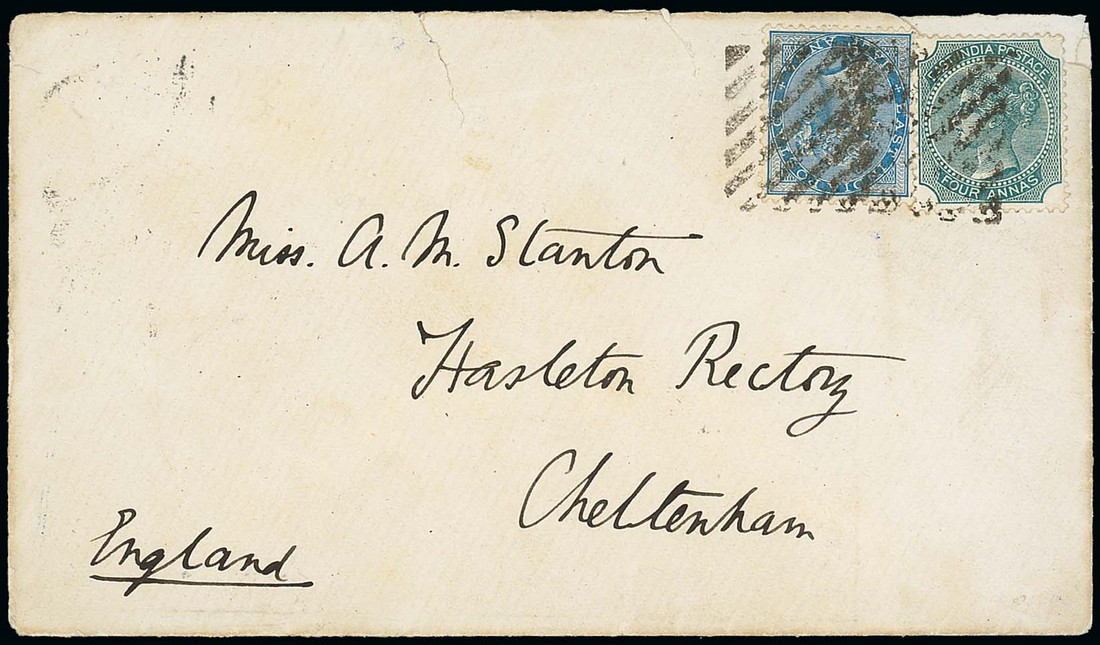 EAST INDIA POSTAGE
FOUR ANNAS
Miss. A. M. Stanton
Hasleton Rectory
Cheltenham
England